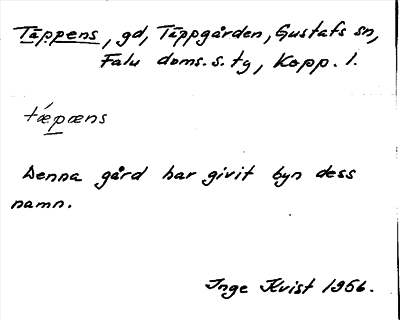 Täppens, gd, Täppgården, Gustafs sn,
Falu doms. s. tg, Kopp. l.
tǽpæns
Denna gård har givit byn dess
namn.
Inge Kvist 1956.